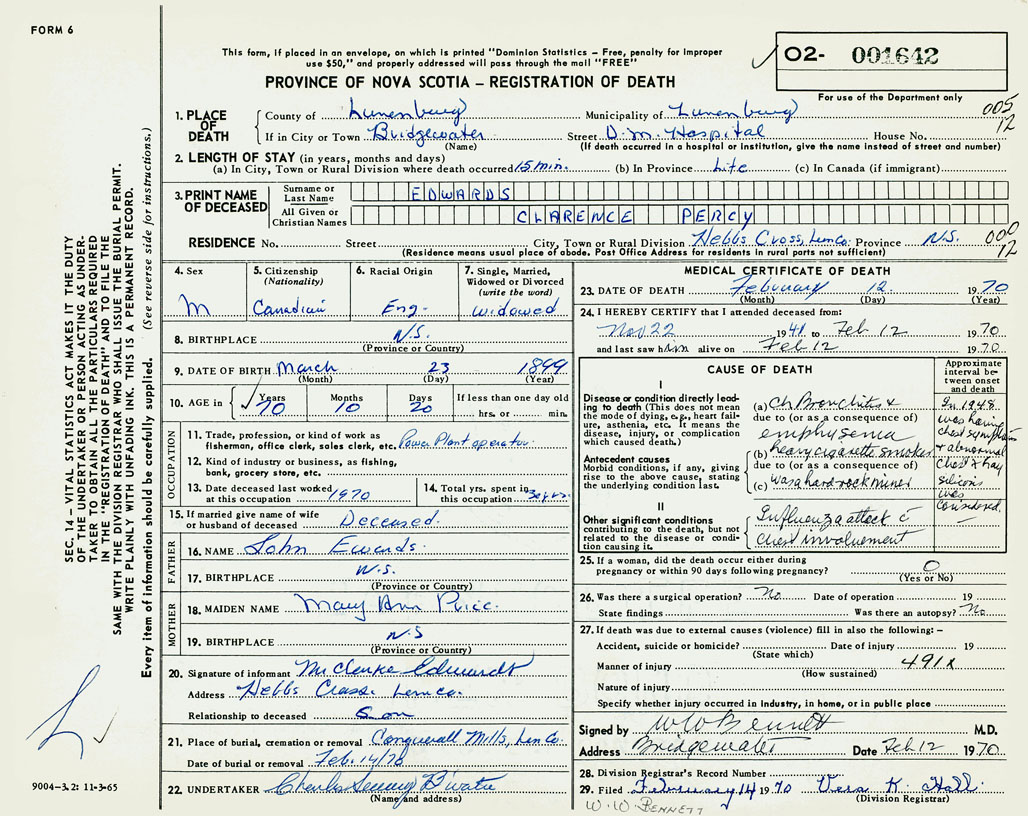 FORM 6
This form, if placed in an envelope, on which is printed "Dominion Statistics – Free, penalty for improper
use $50," and properly addressed will pass through the mail "FREE"
PROVINCE OF NOVA SCOTIA – REGISTRATION OF DEATH
O2- 001642
For use of the Department only
005
12
SEC. 14 – VITAL STATISTICS ACT MAKES IT THE DUTY
OF THE UNDERTAKER OR PERSON ACTING AS UNDER-
TAKER TO OBTAIN ALL THE PARTICULARS REQUIRED
IN THE "REGISTRATION OF DEATH" AND TO FILE THE
SAME WITH THE DIVISION REGISTRAR WHO SHALL ISSUE THE BURIAL PERMIT.
WRITE PLAINLY WITH UNFADING INK. THIS IS A PERMANENT RECORD.
Every item of information should be carefully supplied. (See reverse side for instructions.)
1. PLACE OF DEATH
County of Lunenburg Municipality of Lunenburg
If in City or Town Bridgewater Street D.M. Hospital House No.
(Name) (If death occurred in a hospital or institution, give the name instead of street and number)
2. LENGTH OF STAY (in years, months and days)
(a) In City, Town or Rural Division where death occurred 15 min. (b) In Province Life (c) In Canada (if immigrant)
3. PRINT NAME OF DECEASED
Surname or Last Name EDWARDS
All Given or Christian Names CLARENCE PERCY
RESIDENCE No. Street City, Town or Rural Division Hebbs Cross, Lun Co. Province N.S. 000
12
(Residence means usual place of abode. Post Office Address for residents in rural parts not sufficient)
4. Sex
M
5. Citizenship
(Nationality)
Canadian
6. Racial Origin
Eng.
7. Single, Married,
Widowed or Divorced
(write the word)
Widowed
8. BIRTHPLACE N.S.
(Province or Country)
9. DATE OF BIRTH March 23 1899
(Month) (Day) (Year)
10. AGE in Years Months Days If less than one day old
70 10 20 hrs. or min.
OCCUPATION
11. Trade, profession, or kind of work as
fisherman, office clerk, sales clerk, etc. Power Plant operator
12. Kind of industry or business, as fishing,
bank, grocery store, etc.
13. Date deceased last worked
at this occupation 1970
14. Total yrs. spent in
this occupation
15. If married give name of wife
or husband of deceased Deceased.
FATHER
16. NAME John Edwards
17. BIRTHPLACE N.S.
(Province or Country)
MOTHER
18. MAIDEN NAME Mary Ann Price
19. BIRTHPLACE N.S
(Province or Country)
20. Signature of informant Mr Clarke Edwards
Address Hebbs Cross. Lun Co.
Relationship to deceased Son
21. Place of burial, cremation or removal Conquerall Mills, Lun Co.
Date of burial or removal Feb. 14/70
22. UNDERTAKER Charles B'water
(Name and address)
MEDICAL CERTIFICATE OF DEATH
23. DATE OF DEATH February 12 1970
(Month) (Day) (Year)
24. I HEREBY CERTIFY that I attended deceased from:
Nov 22 1941 to Feb 12 1970
and last saw him alive on Feb 12 1970
CAUSE OF DEATH
Approximate
interval be-
tween onset
and death
I
Disease or condition directly lead-
ing to death (This does not mean
the mode of dying, e.g., heart fail-
ure, asthenia, etc. It means the
disease, injury, or complication
which caused death.)
(a) Ch Bronchitis &
due to (or as a consequence of)
emphysema
Antecedent causes
Morbid conditions, if any, giving
rise to the above cause, stating
the underlying condition last.
(b) heavy cigarette smoker
due to (or as a consequence of)
(c) was a hard rock miner
II
Other significant conditions
contributing to the death, but not
related to the disease or condi-
tion causing it.
Influenza attack c̄
Chest involvement
In 1948
was having
chest symptoms
& abnormal
Chest X Ray
Silicosis
was
Considered.
25. If a woman, did the death occur either during
pregnancy or within 90 days following pregnancy? O
(Yes or No)
26. Was there a surgical operation? No Date of operation 19
State findings Was there an autopsy? No
27. If death was due to external causes (violence) fill in also the following: –
Accident, suicide or homicide? Date of injury 19
(State which)
Manner of injury 491X
(How sustained)
Nature of injury
Specify whether injury occurred in Industry, in home, or in public place
Signed by W W Bennett M.D.
Address Bridgewater Date Feb 12 1970
28. Division Registrar's Record Number
29. Filed February 14 1970 Vera K. Hall
(Division Registrar)
W. W. BENNETT
9004-3.2: 11-3-65